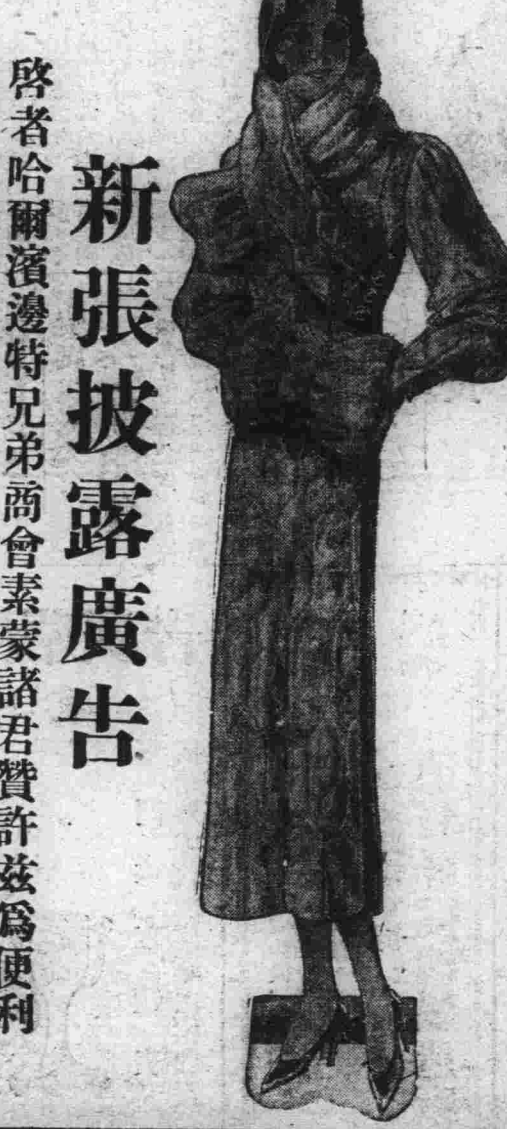 新張披露廣告
啓者哈爾濱邊特兄弟商會素蒙諸君贊許茲爲便利